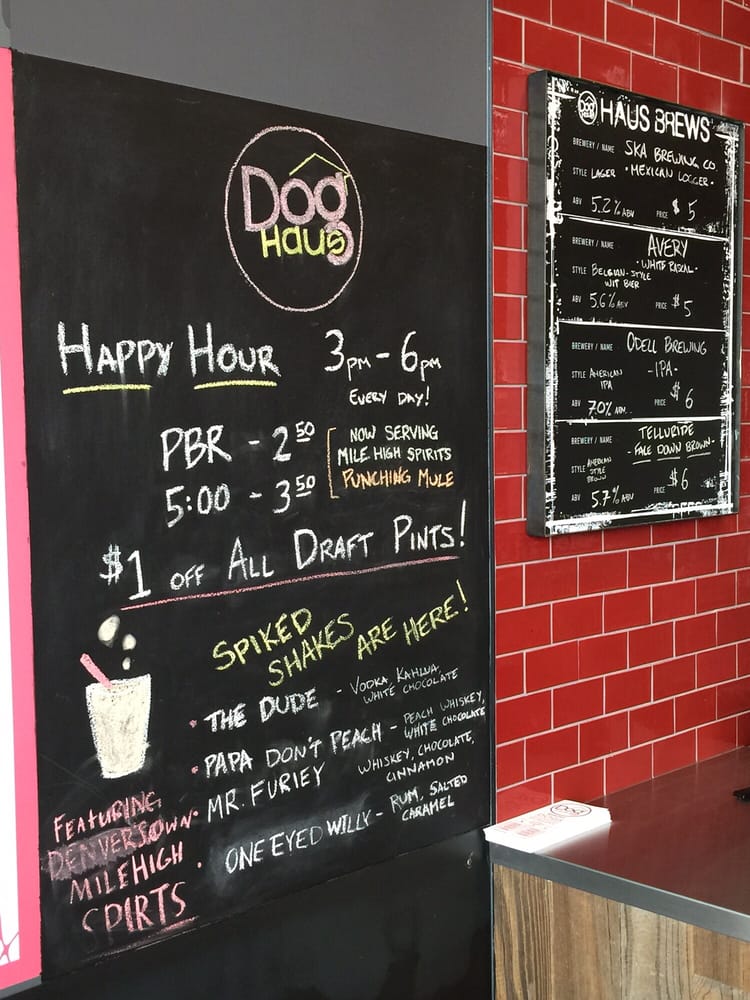 Dog
Haus
HAPPY HOUR 3PM - 6PM
EVERY DAY!
PBR - 2 50
5:00 - 3 50
NOW SERVING
MILE HIGH SPIRITS
PUNCHING MULE
$1 OFF ALL DRAFT PINTS!
SPIKED
SHAKES ARE HERE!
• THE DUDE - VODKA, KAHLUA,
WHITE CHOCOLATE
• PAPA DON'T PEACH - PEACH WHISKEY,
WHITE CHOCOLATE
• MR. FURLEY WHISKEY, CHOCOLATE,
CINNAMON
• ONE EYED WILLY - RUM, SALTED
CARAMEL
FEATURING
DENVERS OWN
MILE HIGH
SPIRTS
Dog Haus HAUS BREWS
BREWERY / NAME SKA BREWING CO.
STYLE LAGER • MEXICAN LOGGER •
ABV 5.2% ABV PRICE $5
BREWERY / NAME AVERY
- WHITE RASCAL -
STYLE BELGIAN-STYLE
WIT BIER
ABV 5.6% ABV PRICE $5
BREWERY / NAME ODELL BREWING
- IPA -
STYLE AMERICAN
IPA
ABV 7.0% PRICE $6
BREWERY / NAME TELLURIDE
- FACE DOWN BROWN -
STYLE AMERICAN
STYLE
BROWN
ABV 5.7% ABV PRICE $6